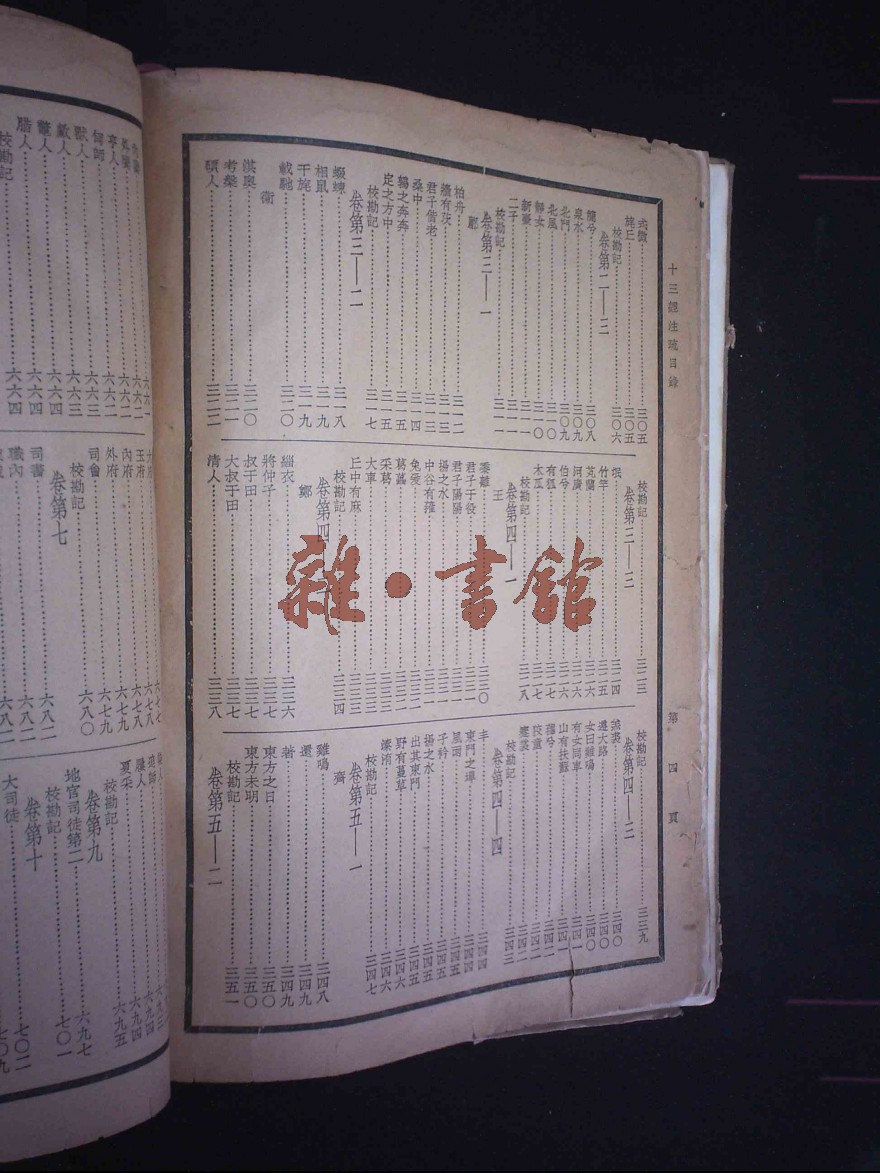 十三經注疏目錄
第四頁
式微三〇五
旄丘三〇五
校勘記三〇六
卷第二—三
簡兮三〇八
泉水三〇九
北門三〇九
北風三一〇
靜女三一〇
新臺三一一
二子
校勘記三一一
卷第三—一
鄘
柏舟三一二
牆有茨三一三
君子偕老三一三
桑中三一四
鶉之奔奔三一五
定之方中三一五
校勘記三一七
卷第三—二
蝃蝀三一八
相鼠三一九
干旄三一九
載馳三二〇
衛
淇奧三二〇
考槃三二一
碩人三二二
校勘記三二三
卷第三—三
氓三二四
竹竿三二五
芄蘭三二六
河廣三二六
伯兮三二七
有狐三二七
木瓜三二七
校勘記三二八
卷第四—一
王
黍離三三〇
君子于役三三一
君子陽陽三三一
揚之水三三一
中谷有蓷三三一
兔爰三三二
葛藟三三二
采葛三三三
大車三三三
丘中有麻三三三
校勘記三三四
卷第四
鄭
緇衣三三六
將仲子三三七
叔于田三三七
大叔于田三三七
清人三三八
校勘記三三九
卷第四—三
羔裘三四〇
遵大路三四〇
女曰雞鳴三四〇
有女同車三四一
山有扶蘇三四一
蘀兮三四二
狡童三四二
褰裳三四二
校勘記三四三
卷第四—四
丰三四四
東門之墠三四四
風雨三四五
子衿三四五
揚之水三四五
出其東門三四五
野有蔓草三四六
溱洧三四六
校勘記三四七
卷第五—一
齊
雞鳴三四八
還三四九
著三四九
東方之日三五〇
東方未明三五〇
校勘記三五一
卷第五—二
亨人六六二
甸師六六三
獸人六六三
鱉人六六四
腊人六六四
校勘記六六四
玉府六七八
內府六七八
外府六七九
司會六七九
校勘記六八〇
卷第七
司書六八二
職內六八二
屨人六九四
夏采六九五
校勘記
卷第九
地官司徒第二六九七
校勘記七〇一
卷第十
大司徒七〇二
雜·書館